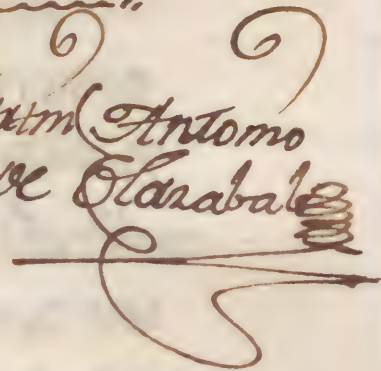 Antonio
de Olazabal